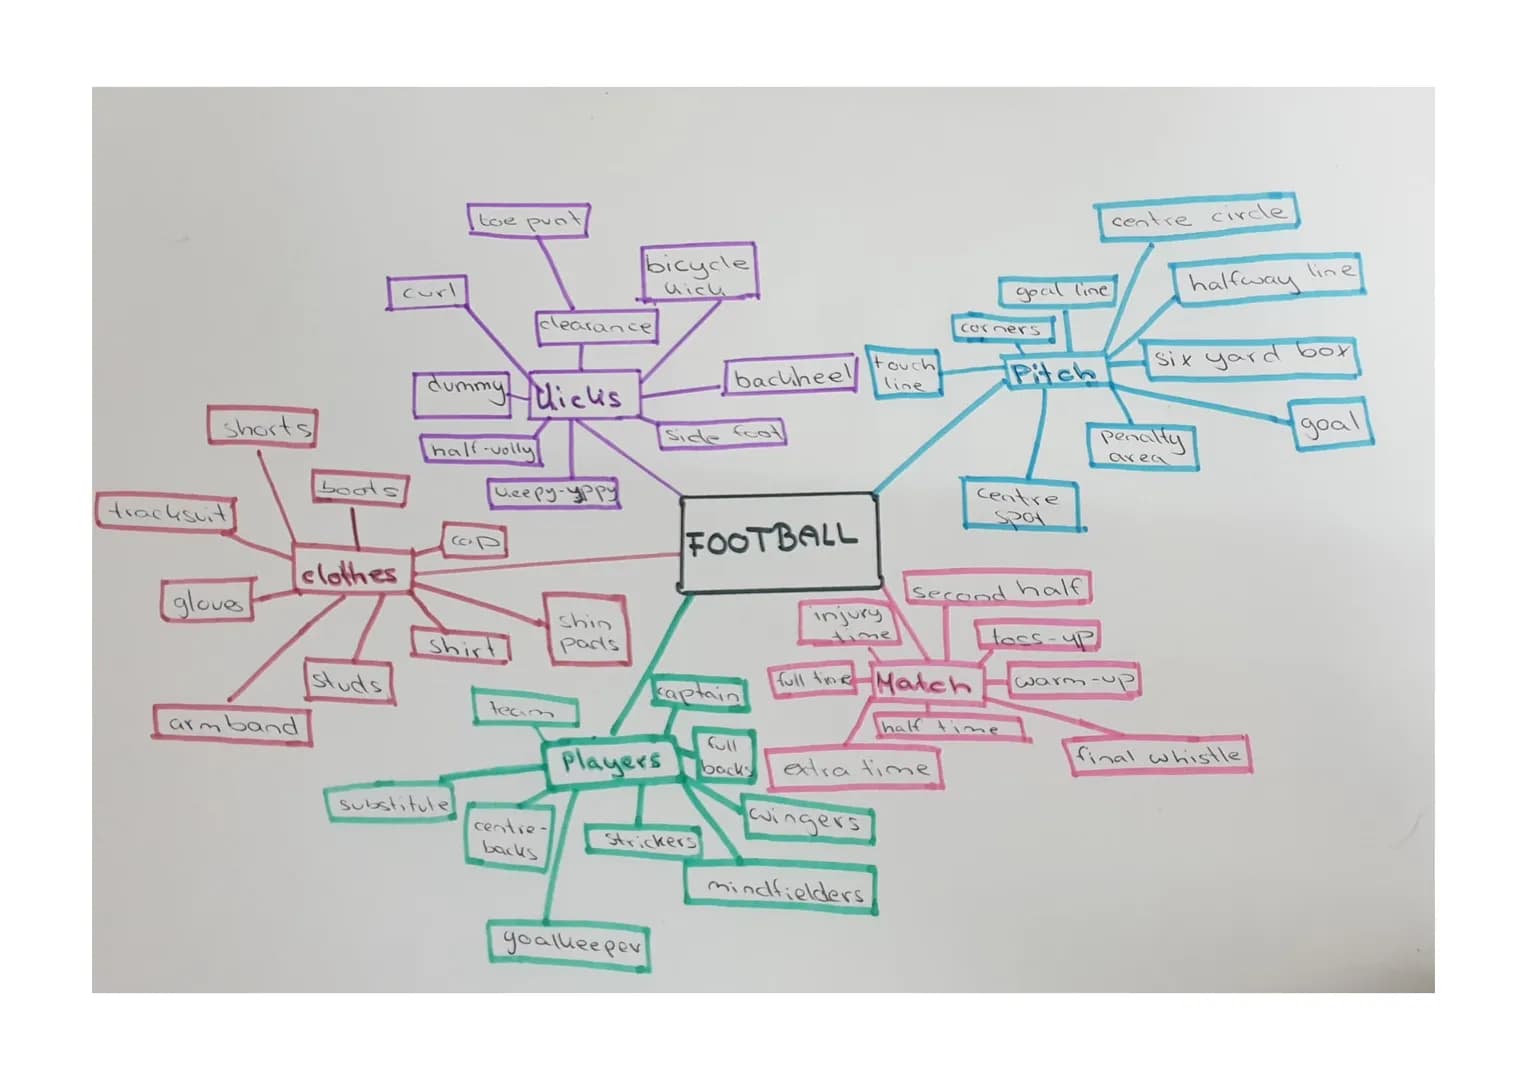 toe punt
bicycle
kick
curl
clearance
dummy
Kicks
backheel
half-volly
side foot
keepy-yppy
centre circle
goal line
halfway line
corners
touch
line
Pitch
six yard box
goal
penalty
area
centre
spot
FOOTBALL
shorts
boots
tracksuit
cap
clothes
gloves
shin
pads
shirt
studs
armband
second half
injury
time
toss-up
full time
Match
warm-up
half time
extra time
final whistle
captain
team
full
backs
Players
substitute
centre-
backs
strickers
wingers
mindfielders
goalkeeper